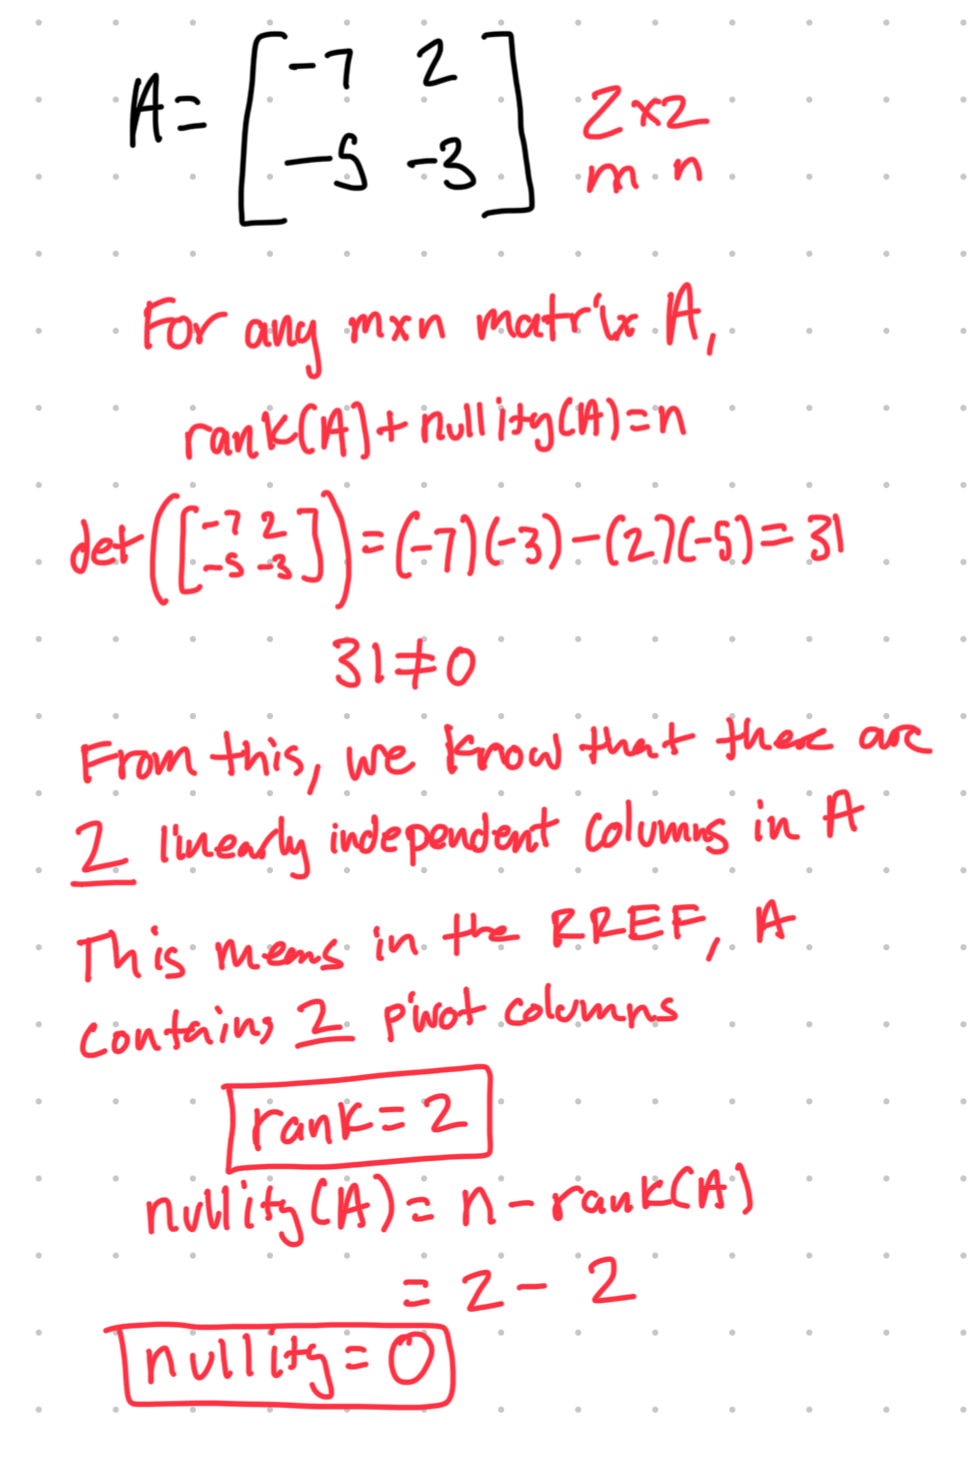 A = [ -7 2
-5 -3 ]
2 x 2
m n
For any mxn matrix A,
rank(A) + nullity(A) = n
det([ -7 2
-5 -3 ]) = (-7)(-3) - (2)(-5) = 31
31 ≠ 0
From this, we know that there are
2 linearly independent columns in A
This means in the RREF, A
contains 2 pivot columns
rank = 2
nullity(A) = n - rank(A)
= 2 - 2
nullity = 0